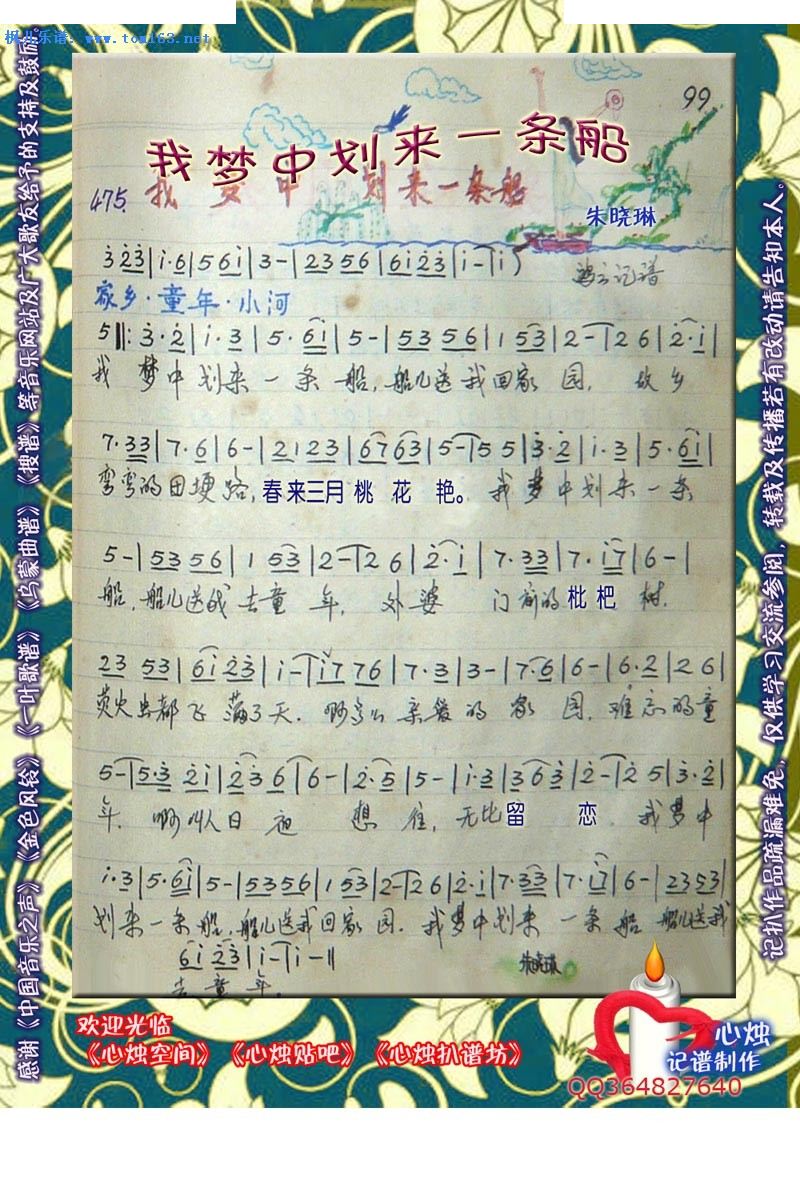 枫儿乐谱: www.tom163.net
99
我梦中划来一条船
475. 我梦中划来一条船
朱晓琳
3 23|i·6|5 6i|3-|23 56|6i 23|i-|i)
记谱
家乡·童年·小河
5‖:3·2|i·3|5·6i|5-|53 56|1 53|2-|2 6|2·i|
我 梦中 划来 一 条 船, 船儿送我回家 园, 故乡
7·33|7·6|6-|21 23|67 63|5-|5 5|3·2|i·3|5·6i|
弯弯的田埂路,春来三月 桃 花 艳。 我梦中划来一条
5-|53 56|1 53|2-|2 6|2·i|7·33|7·i7|6-|
船, 船儿送我去童 年, 外婆 门前的枇杷 树.
23 53|6i 23|i-|i7 76|7·3|3-|7·6|6-|6·2|2 6|
萤火虫都飞 满了天. 啊 亲爱的 家 园, 难忘的童
5-|5·3 2i|23 6|6-|2·5|5-|i·3|3 63|2-|2 5|3·2|
年. 啊 叫人日夜 想 往, 无比留 恋. 我梦中
i·3|5·6i|5-|53 56|1 53|2-|2 6|2·i|7·33|7·i7|6-|23 53|
划来一条船, 船儿送我回家 园. 我梦中划来 一条 船 船儿送我
6i 23|i-|i-‖
去童 年.
朱晓琳
欢迎光临
《心烛空间》《心烛贴吧》《心烛扒谱坊》
心烛
记谱制作
QQ364827640
感谢《中国音乐之声》《金色风铃》《一叶歌谱》《乌蒙曲谱》《搜谱》等音乐网站及广大歌友给予的支持及鼓励。
记扒作品疏漏难免，仅供学习交流参阅，转载及传播若有改动请告知本人。